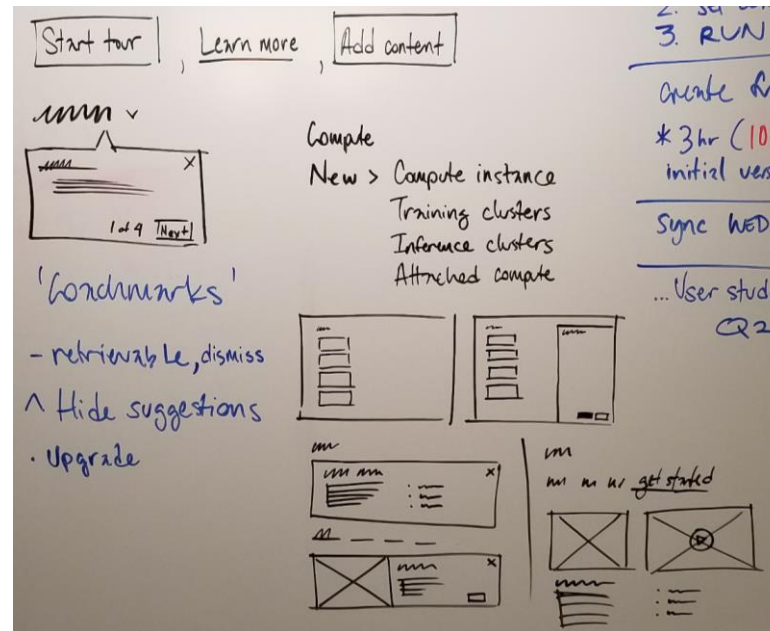 Start tour , Learn more , Add content
1 of 4 Next
'Coachmarks'
- retrievable, dismiss
^ Hide suggestions
· Upgrade
Compute
New > Compute instance
Training clusters
Inference clusters
Attached compute
get started
3. RUN
Create
* 3hr (10
initial
Sync WED
... User